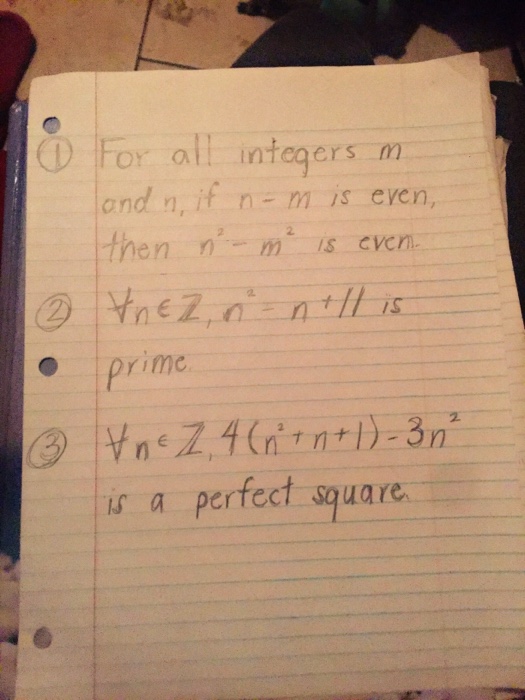 ① For all integers m
and n, if n - m is even,
then n² - m² is even.
② ∀n∈ℤ, n² - n + 11 is
prime.
③ ∀n∈ℤ, 4(n² + n + 1) - 3n²
is a perfect square.